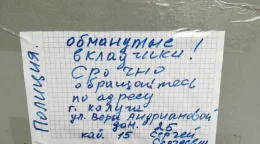 Полиция.
обманутые
вкладчики!
Срочно
обращайтесь
по адресу
г. Калуга
ул. Веры Андриановой
дом. 25
каб. 15 Сергей